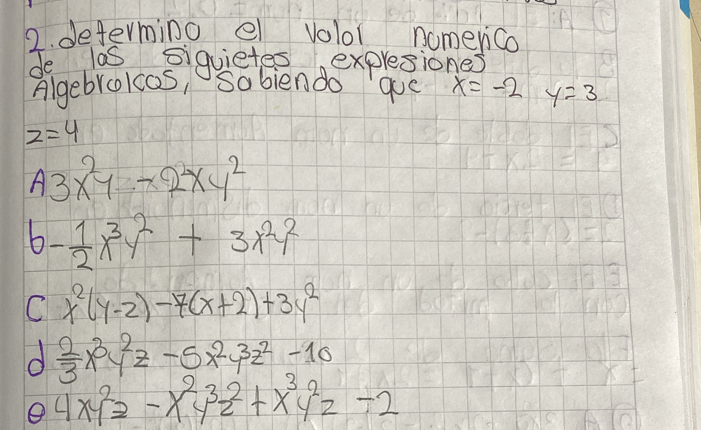 2. determino el valor numerico
de las siguietes expresiones
Algebraicas, sabiendo que x = -2 y = 3
z = 4
A 3x²y - 2xy²
b - 1/2 x³y² + 3x²y²
C x²(y-z) - 7(x+2) + 3y²
d 2/3 x³y²z - 5x²y³z² - 10
e 4xy²z - x²y³z² + x³y²z - 2